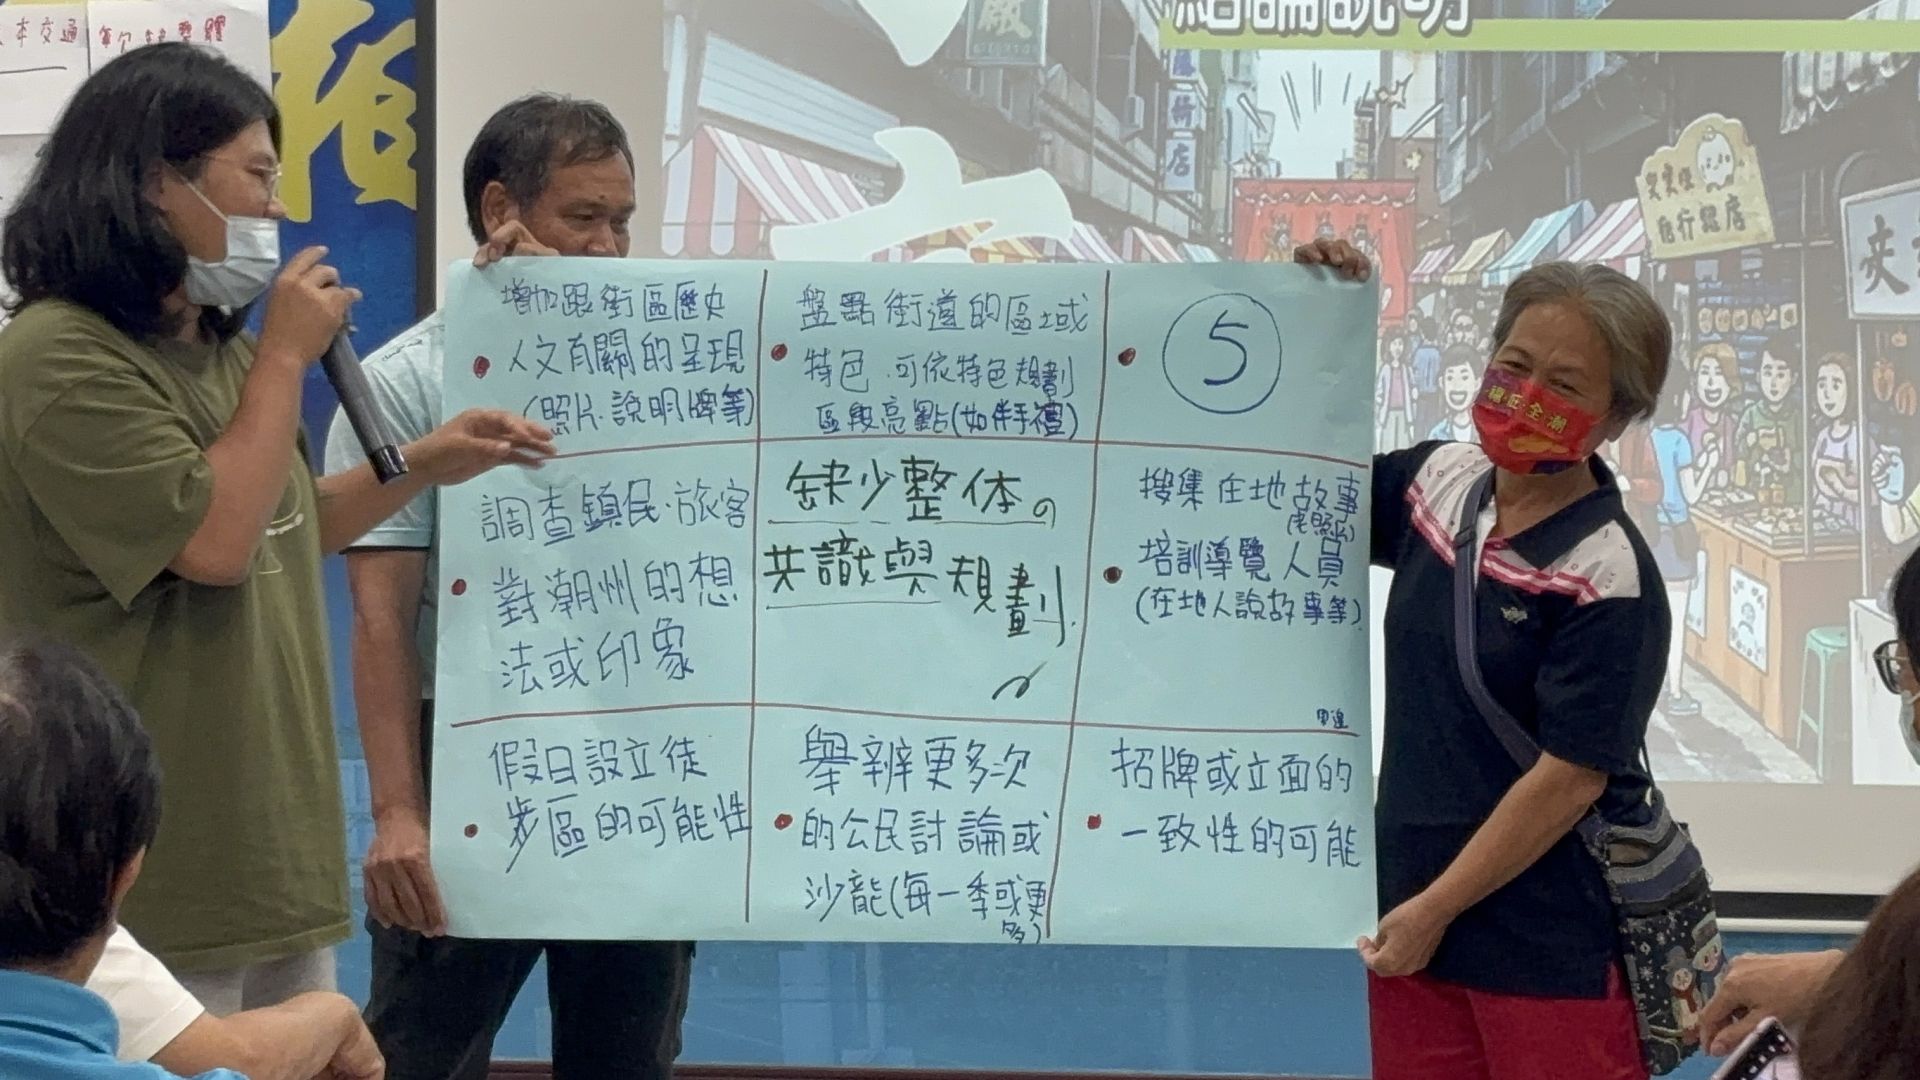 結論說明
本交通
增加跟街區歷史
人文有關的呈現
(照片.說明牌等)
盤點街道的區域
特色.可依特色規劃
區段亮點(如伴手禮)
5
調查鎮民.旅客
對潮州的想
法或印象
缺少整体の
共識與規劃
搜集在地故事
(老照片)
培訓導覽人員
(在地人說故事等)
假日設立徒
步區的可能性
舉辦更多次
的公民討論或
沙龍(每一季或更
多)
招牌或立面的
一致性的可能
店
夾